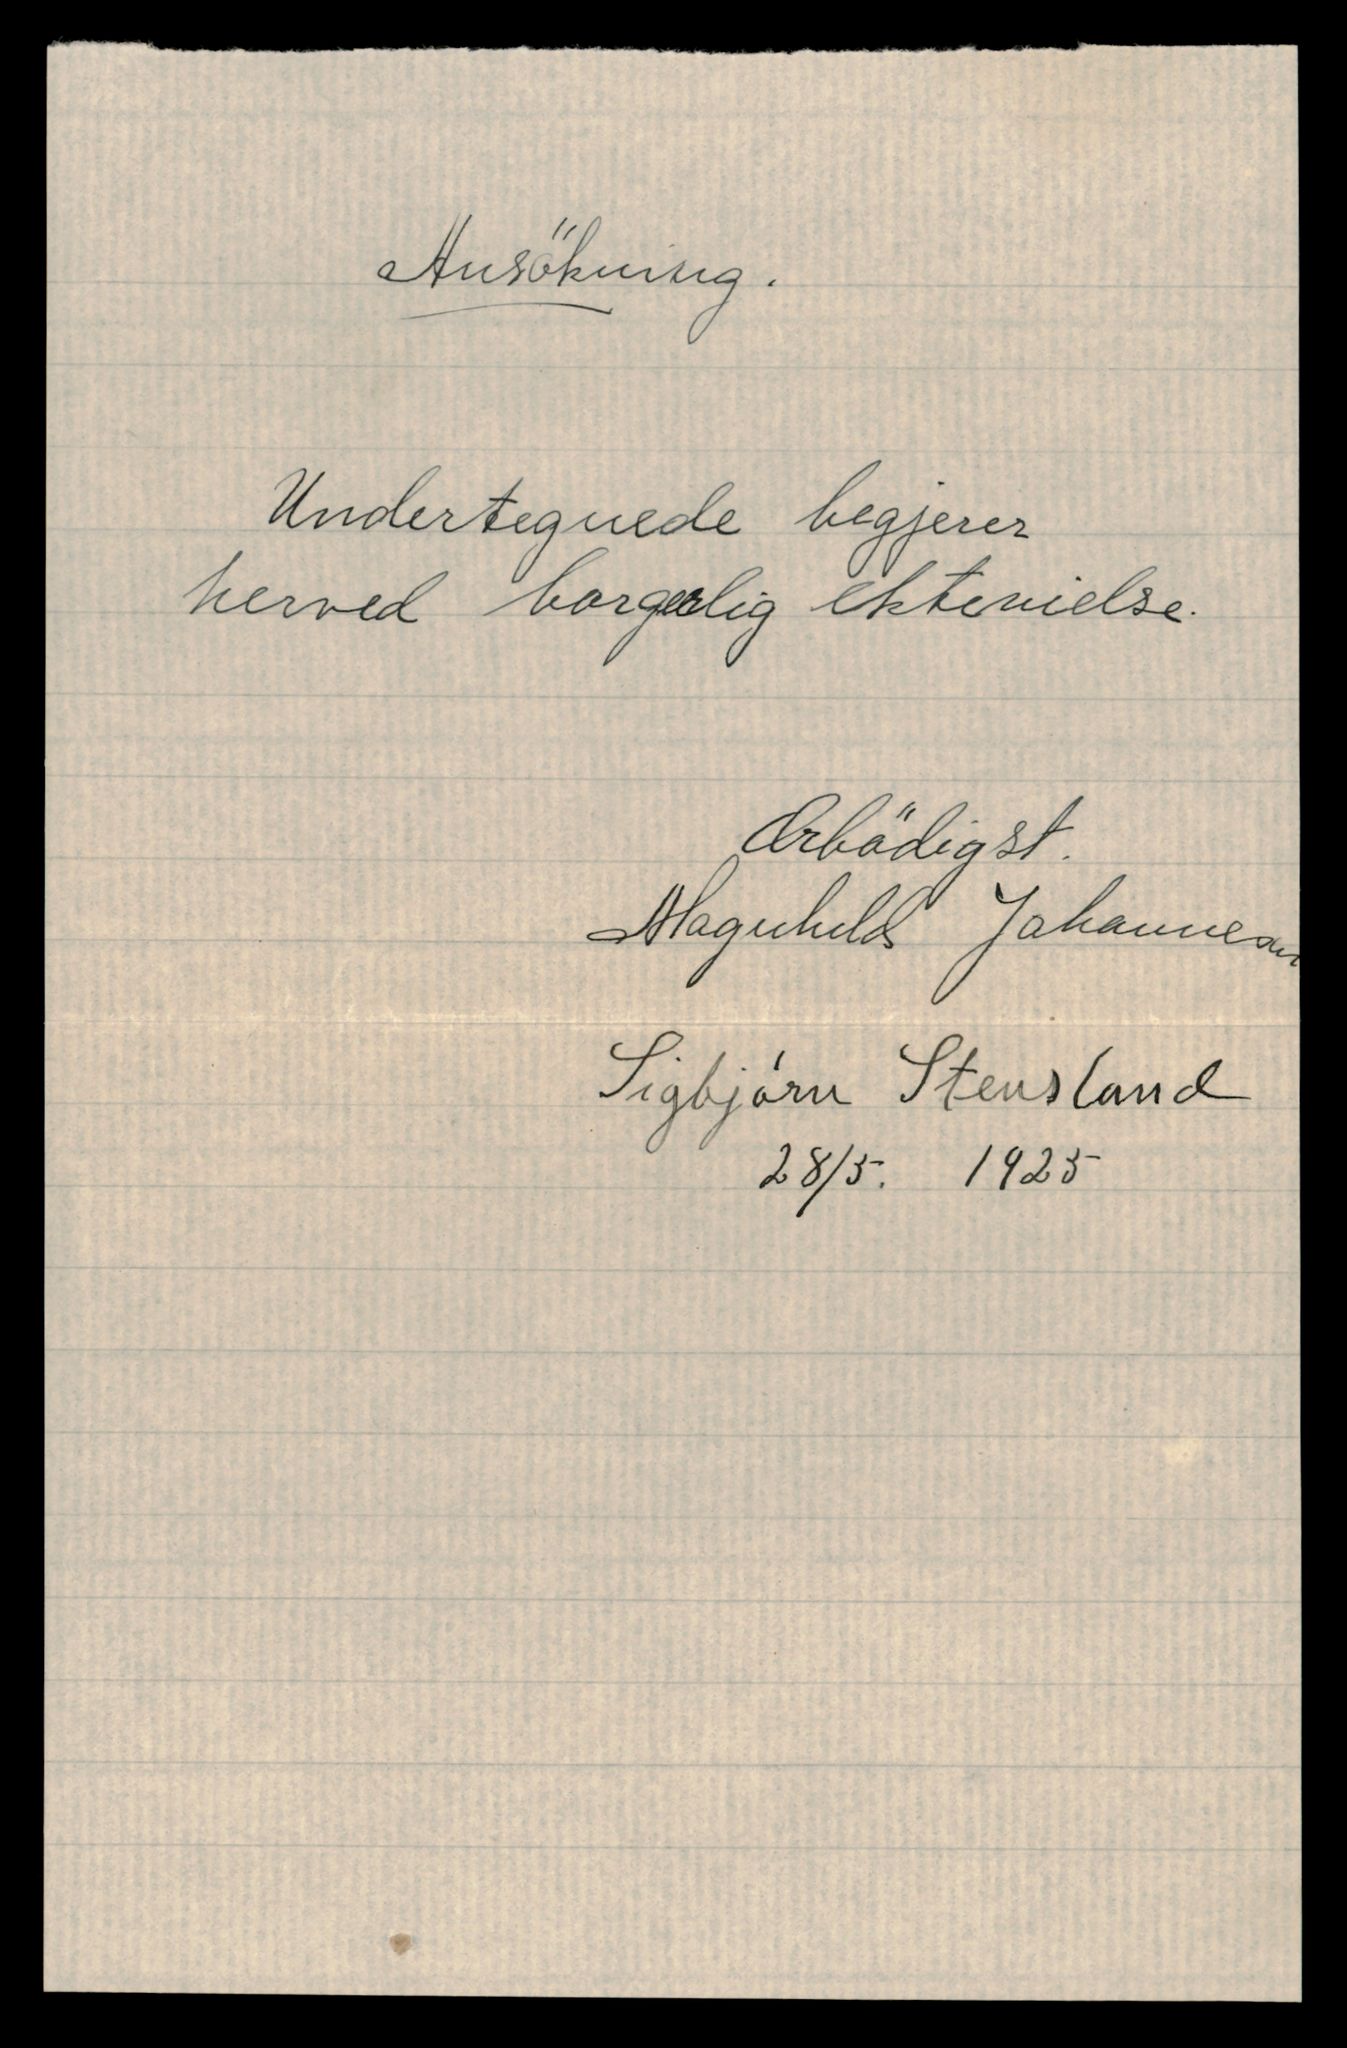 Ansökning.
Undertegnede begjerer
herved borgerlig ektevielse.
Ærbödigst.
Magnhild Johannesen
Sigbjörn Stensland
28/5. 1925